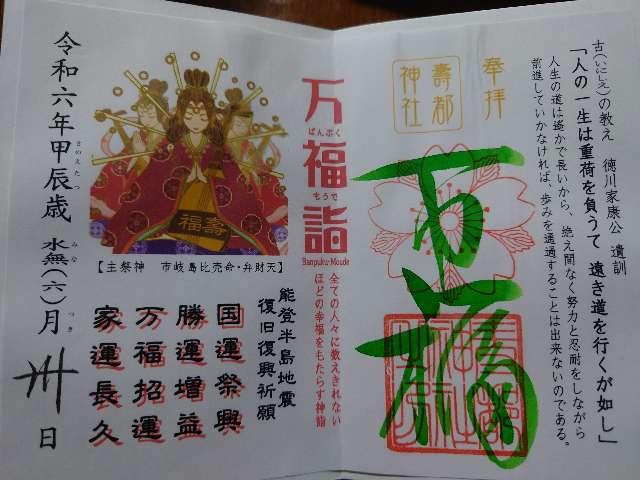 古(いにしえ)の教え 徳川家康公 遺訓
「人の一生は重荷を負うて 遠き道を行くが如し」
人生の道は遙かで長いから、絶え間なく努力と忍耐をしながら
前進していかなければ、歩みを通過することは出来ないのである。
奉拝
壽都
神社
万福
万福詣
ばんぷく
もうで
Banpuku-Moude
全ての人々に数えきれない
ほどの幸福をもたらす神詣
福壽
【主祭神 市岐島比売命・弁財天】
能登半島地震
復旧復興祈願
国運祭興
勝運増益
万福招運
家運長久
令和六年甲辰歳 水無(六)月 卅 日
きのえたつ
みな
つき